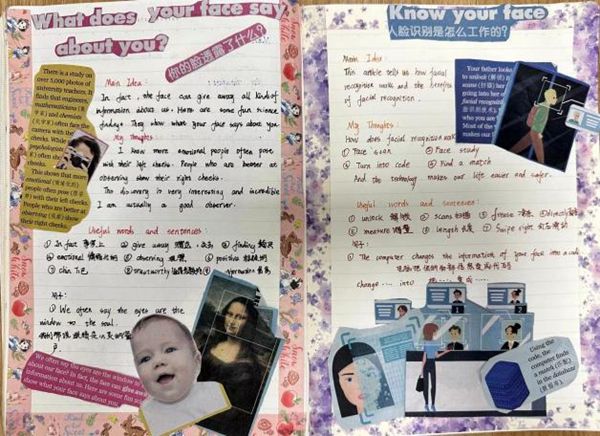 What does your face say
about you?
你的脸透露了什么?
There is a study on
over 5,000 photos of
university teachers. It
finds that engineers,
mathematicians
and chemists
often face the
camera with the
cheeks. While
psychologists
often show
right cheeks.
This shows that more
emotional
people often pose
with their left cheeks.
People who are better at
observing show
their right cheeks.
Main Idea:
In fact, the face can give away all kinds of
information about us. Here are some fun science
findings. They show what your face says about you.
My Thoughts:
I know more emotional people often pose
with their left cheeks. People who are better at
observing show their right cheeks.
The discovery is very interesting and incredible
I am usually a good observer.
Useful words and sentences:
① In fact 事实上 ② give away ③ finding
④ emotional ⑤ observing 观察 ⑥ positive
⑦ chin 下巴 ⑧ trustworthy
句子:
① We often say the eyes are the
window to the soul.
We often say the eyes are the window to
about our face? In fact, the face can give away
information about us. Here are some fun
show what your face says about you.
Know your face
人脸识别是怎么工作的?
Main Idea:
This article tells us how facial
recognition work and the benefits
of facial recognition.
Your father looks
to unlock
scans
going into her
facial recognition
you are
Most of the
makes our
My Thoughts:
How does facial recognition work
① Face scan ② Face study
③ Turn into code ④ Find a match
And the technology makes our life easier and safer.
Useful words and sentences:
① unlock 解锁 ② scans 扫描 ③ freeze ④ directly
⑤ measure 测量 ⑥ length 长度 ⑦ Swipe right
句子:
① The computer changes the information of your face into a code
change ... into
Using the
code, the
computer finds
a match
in the database